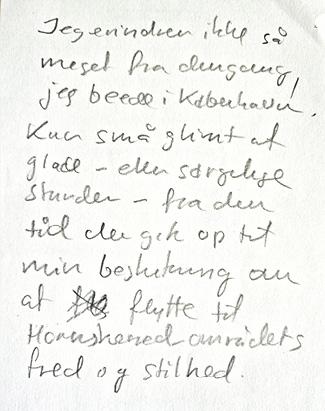 Jeg erindrer ikke så
meget fra dengang,
jeg boede i København.
Kun små glimt af
glade – eller sørgelige
stunder – fra den
tid der gik op til
min beslutning om
at flytte til
Hornsherred-områdets
fred og stilhed.